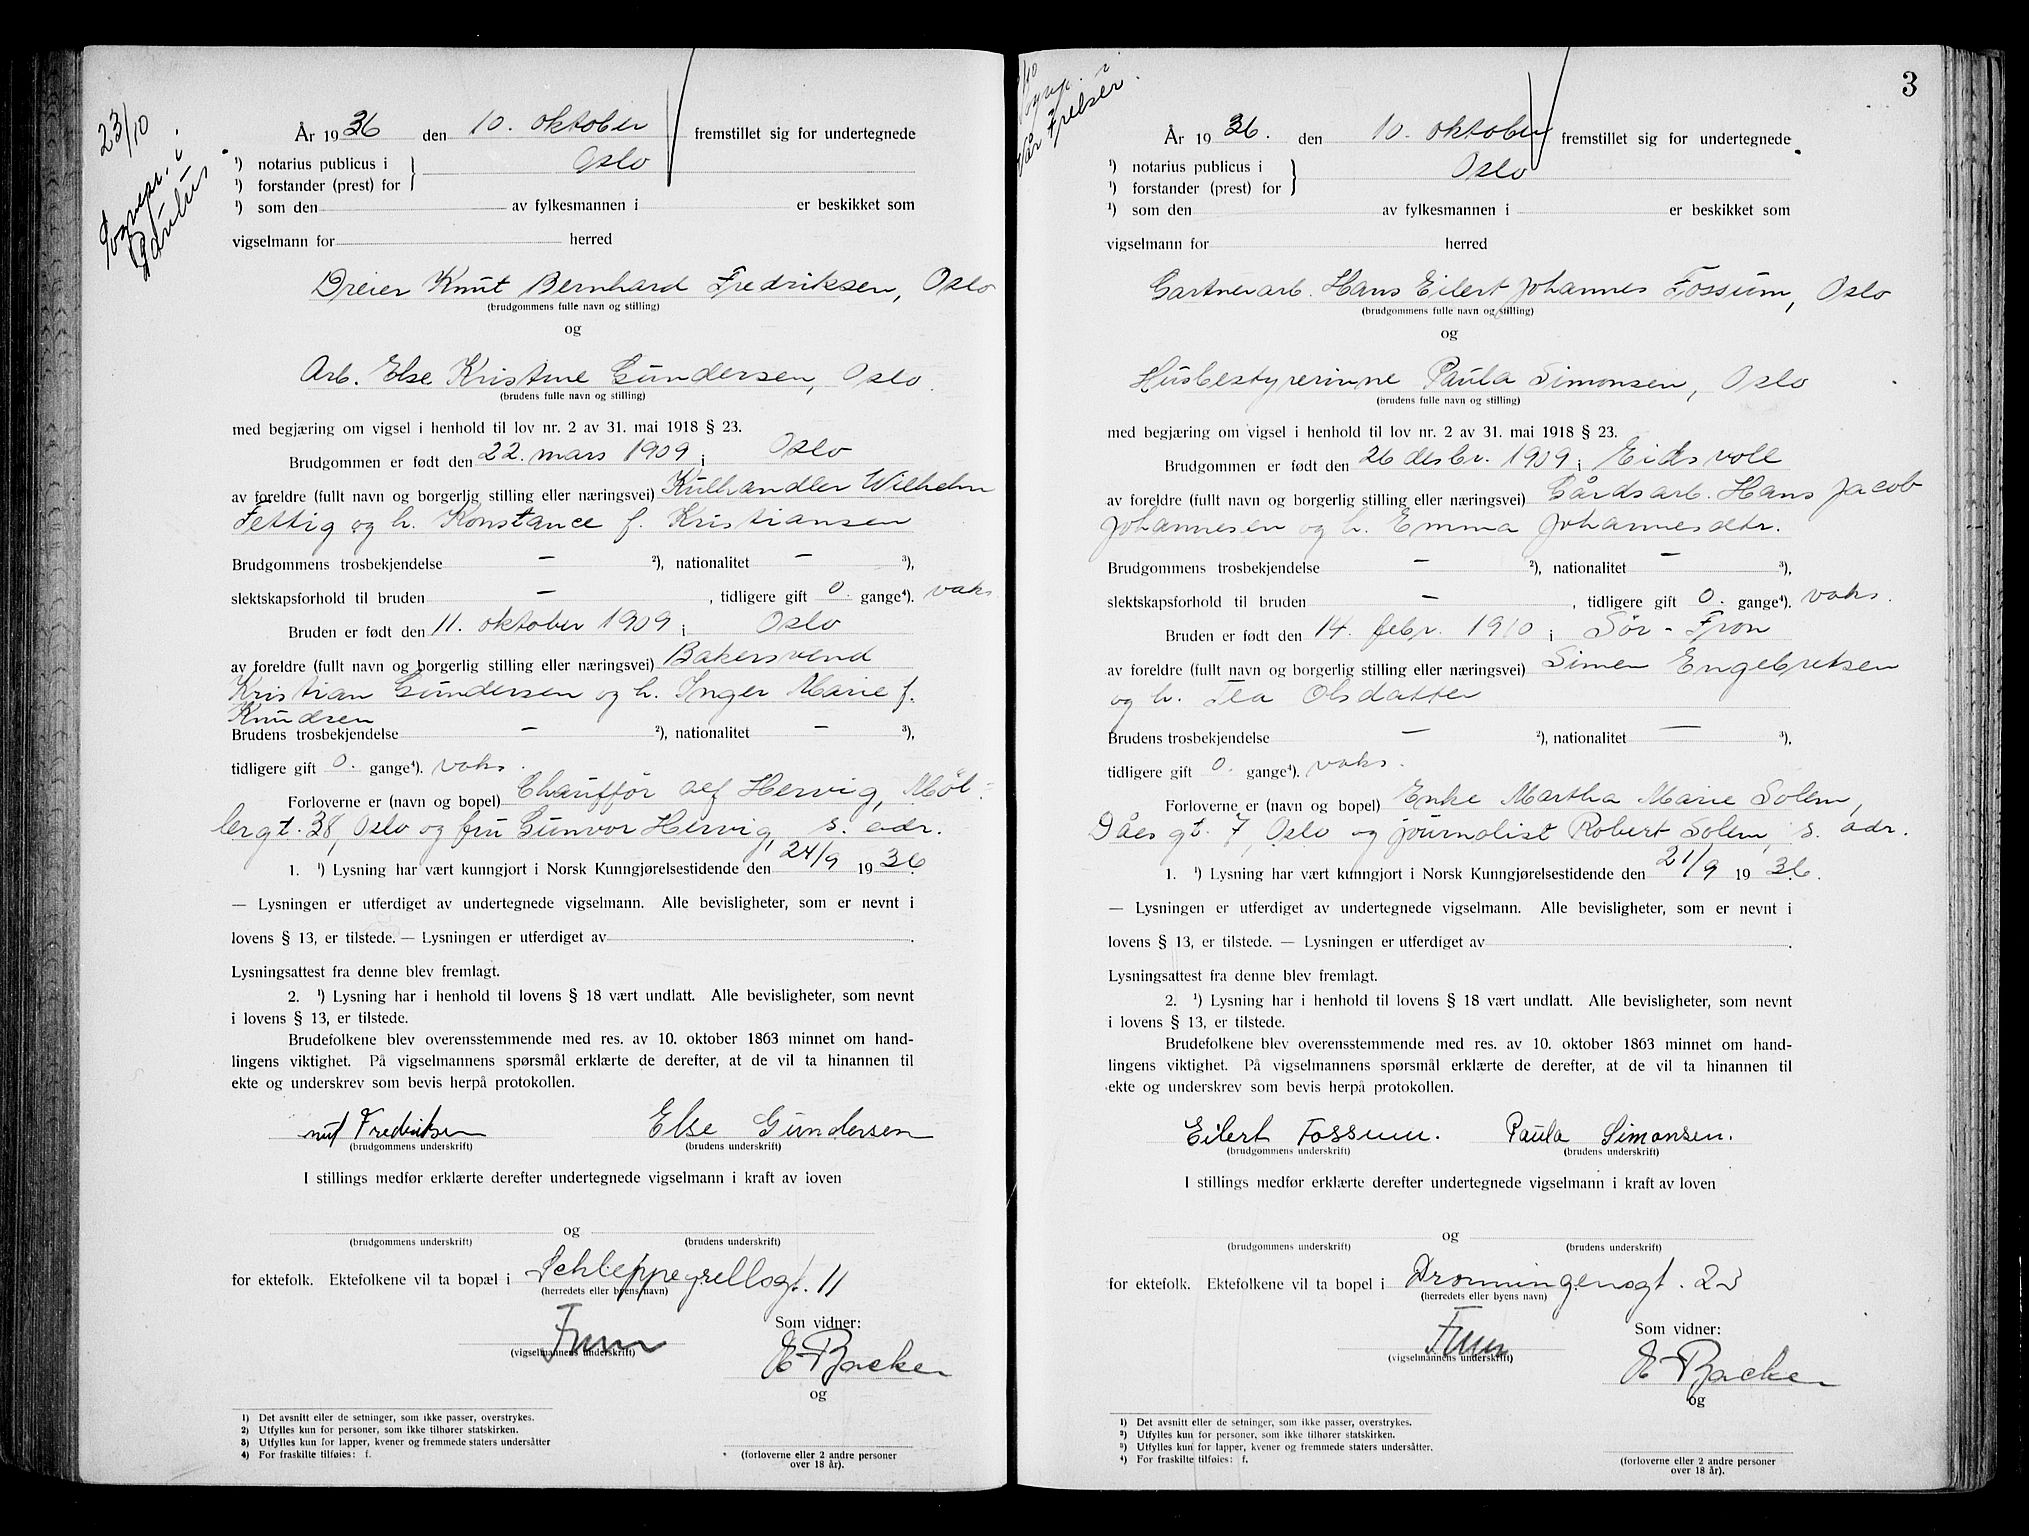 23/10
Sognepr. i
Paulus
År 1936 den 10. oktober fremstillet sig for undertegnede
¹) notarius publicus i } Oslo
¹) forstander (prest) for
¹) som den av fylkesmannen i er beskikket som
vigselmann for herred
Dreier Knut Bernhard Fredriksen, Oslo
(brudgommens fulle navn og stilling)
og
Arb. Else Kristine Gundersen, Oslo.
(brudens fulle navn og stilling)
med begjæring om vigsel i henhold til lov nr. 2 av 31. mai 1918 § 23.
Brudgommen er født den 22. mars 1909 i Oslo
av foreldre (fullt navn og borgerlig stilling eller næringsvei) Kullhandler Wilhelm
Fettig og h. Konstance f. Kristiansen
Brudgommens trosbekjendelse — ²), nationalitet — ³),
slektskapsforhold til bruden — , tidligere gift 0. gange⁴). vaks.
Bruden er født den 11. oktober 1909 i Oslo
av foreldre (fullt navn og borgerlig stilling eller næringsvei) Bakersvend
Kristian Gundersen og h. Inger Marie f.
Knudsen
Brudens trosbekjendelse — ²), nationalitet — ³),
tidligere gift 0. gange⁴). vaks.
Forloverne er (navn og bopel) Chauffør Alf Hervig, Møl-
lergt. 38, Oslo og fru Gunvor Hervig, s. adr.
1. ¹) Lysning har vært kunngjort i Norsk Kunngjørelsestidende den 24/9 1936.
— Lysningen er utferdiget av undertegnede vigselmann. Alle bevisligheter, som er nevnt i
lovens § 13, er tilstede. — Lysningen er utferdiget av .
Lysningsattest fra denne blev fremlagt.
2. ¹) Lysning har i henhold til lovens § 18 vært undlatt. Alle bevisligheter, som nevnt
i lovens § 13, er tilstede.
Brudefolkene blev overensstemmende med res. av 10. oktober 1863 minnet om hand-
lingens viktighet. På vigselmannens spørsmål erklærte de derefter, at de vil ta hinannen til
ekte og underskrev som bevis herpå protokollen.
nut Fredriksen Else Gundersen
(brudgommens underskrift) (brudens underskrift)
I stillings medfør erklærte derefter undertegnede vigselmann i kraft av loven
og
(brudgommens underskrift) (brudens underskrift)
for ektefolk. Ektefolkene vil ta bopæl i Schleppegrellsgt. 11
(herredets eller byens navn)
Som vidner:
(vigselmannens underskrift) E Backer
og
1) Det avsnitt eller de setninger, som ikke passer, overstrykes.
2) Utfylles kun for personer, som ikke tilhører statskirken.
3) Utfylles kun for lapper, kvener og fremmede staters undersåtter
4) For fraskilte tilføies: f.
(forloverne eller 2 andre personer
over 18 år).
3
/10
Sognepr. i
Vår Frelser
År 1936. den 10. oktober fremstillet sig for undertegnede
¹) notarius publicus i } Oslo
¹) forstander (prest) for
¹) som den av fylkesmannen i er beskikket som
vigselmann for herred
Gartnerarb. Hans Eilert Johannes Fossum, Oslo
(brudgommens fulle navn og stilling)
og
Husbestyrerinne Paula Simonsen, Oslo
(brudens fulle navn og stilling)
med begjæring om vigsel i henhold til lov nr. 2 av 31. mai 1918 § 23.
Brudgommen er født den 26 desbr. 1909 i Eidsvoll
av foreldre (fullt navn og borgerlig stilling eller næringsvei) Gårdsarb. Hans Jacob
Johannesen og h. Emma Johannesdtr.
Brudgommens trosbekjendelse — ²), nationalitet — ³),
slektskapsforhold til bruden — , tidligere gift 0. gange⁴). vaks.
Bruden er født den 14. febr. 1910 i Sör-Fron
av foreldre (fullt navn og borgerlig stilling eller næringsvei) Simen Engebretsen
og h. Tea Olsdatter
Brudens trosbekjendelse — ²), nationalitet — ³),
tidligere gift 0. gange⁴). vaks.
Forloverne er (navn og bopel) Enke Martha Marie Solem,
Dåes gt. 7, Oslo og journalist Robert Solem, s. adr.
1. ¹) Lysning har vært kunngjort i Norsk Kunngjørelsestidende den 21/9 1936.
— Lysningen er utferdiget av undertegnede vigselmann. Alle bevisligheter, som er nevnt i
lovens § 13, er tilstede. — Lysningen er utferdiget av .
Lysningsattest fra denne blev fremlagt.
2. ¹) Lysning har i henhold til lovens § 18 vært undlatt. Alle bevisligheter, som nevnt
i lovens § 13, er tilstede.
Brudefolkene blev overensstemmende med res. av 10. oktober 1863 minnet om hand-
lingens viktighet. På vigselmannens spørsmål erklærte de derefter, at de vil ta hinannen til
ekte og underskrev som bevis herpå protokollen.
Eilert Fossum. Paula Simonsen.
(brudgommens underskrift) (brudens underskrift)
I stillings medfør erklærte derefter undertegnede vigselmann i kraft av loven
og
(brudgommens underskrift) (brudens underskrift)
for ektefolk. Ektefolkene vil ta bopel i Dronningensgt. 23
(herredets eller byens navn)
Som vidner:
(vigselmannens underskrift) E Backer
og
¹) Det avsnitt eller de setninger, som ikke passer, overstrykes.
²) Utfylles kun for personer, som ikke tilhører statskirken.
³) Utfylles kun for lapper, kvener og fremmede staters undersåtter.
⁴) For fraskilte tilføies: f.
(forloverne eller 2 andre personer
over 18 år).